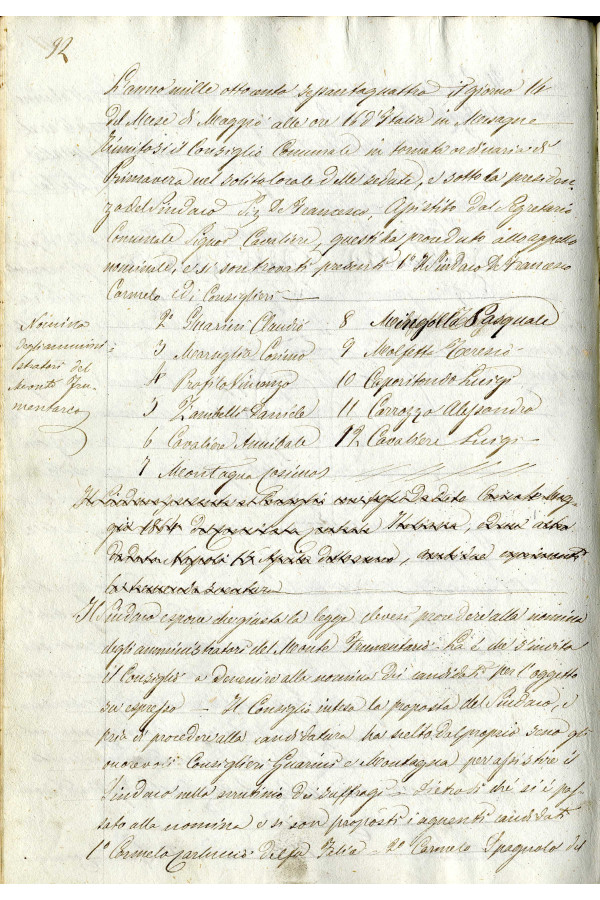 92
L'anno mille ottocento settantaquattro il giorno 14
del Mese di Maggio alle ore 16 d'Italia in Mesagne
Riunitosi il Consiglio Comunale in tornata ordinaria di
Primavera nel solito locale delle sedute, e sotto la presiden-
za del Sindaco Sig. De Francesco, assistito dal Segretario
Comunale Signor Cavaliere, questi ha proceduto allo appello
nominale, e si son trovati presenti 1° Il Sindaco De Francesco
Carmelo Di Consiglieri
Nomina
degli ammini
stratori del
Monte Fru-
mentario
2° Guarini Claudio
3 Maraglia Cosimo
4 Profilo Vincenzo
5 Zambelli Daniele
6 Cavaliere Annibale
7 Montagna Cosimo
8 Mingolla Pasquale
9 Molfetta
10 Luigi
11 Carrozzo Alessandro
12 Cavaliere Luigi
Il Sindaco
Italiana,
da Napoli Aprile
Il Sindaco espone che giusta la legge devesi procedere alla nomina
degli amministratori del Monte Frumentario
il Consiglio a devenire alla nomina dei candidati per l'oggetto
su espresso - Il Consiglio intesa la proposta del Sindaco, e
pria di procedere alla candidatura ha scelto dal proprio seno gli
onorevoli Consiglieri Guarini e Montagna per assistere il
Sindaco nello scrutinio dei suffragi - che si è pas-
sato alla nomina e si son proposti i seguenti candidati
1° Carmelo Carluccio - 2° Carmelo Spagnolo del